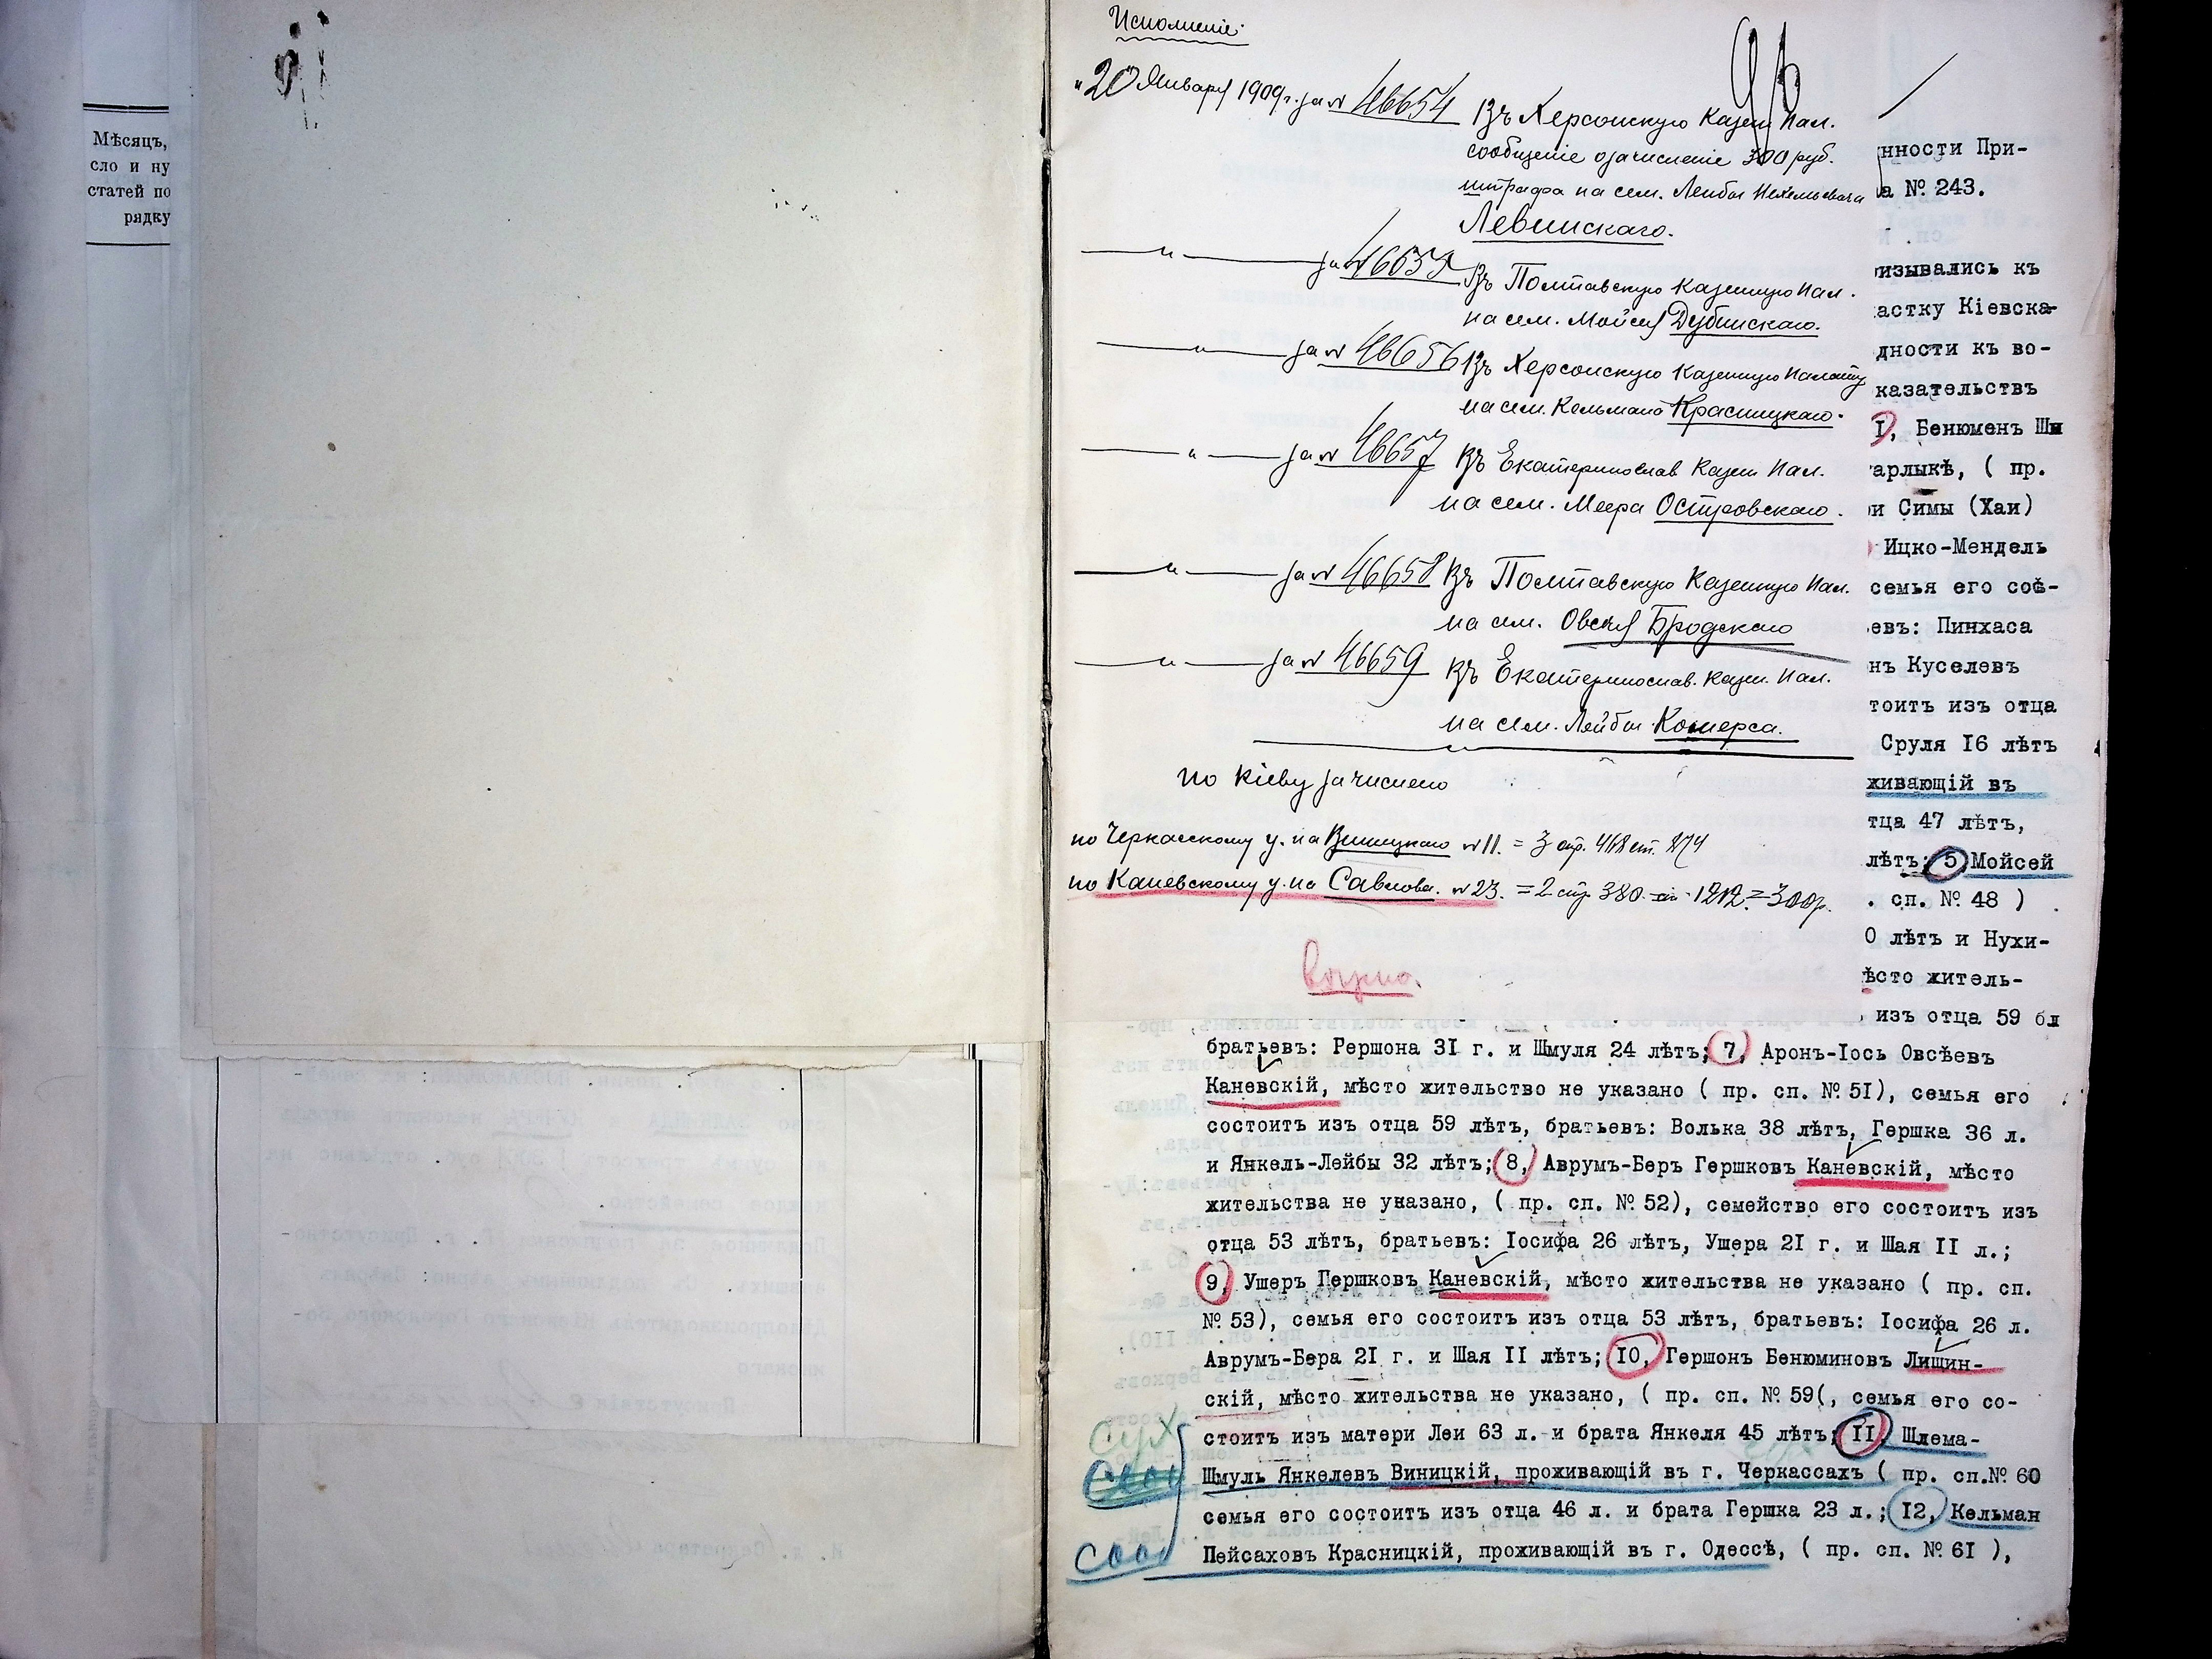 Мѣсяцъ,
сло и ну
статей по
рядку
Исполненіе:
"20" Января 1909 г. за № 46654 Въ Херсонскую Казен Пал.
сообщеніе о зачисленіе 300 руб.
штрафа на сем. Лейбы
Левинскаго.
— " — за № 46655 Въ Полтавскую Казенную Пал.
на сем. Мойсея Дубинскаго.
— " — за № 46656 Въ Херсонскую Казенную Палату
на сем. Кельмана Красницкаго.
— " — за № 46657 Въ Екатеринослав Казен Пал.
на сем. Меера Островскаго.
— " — за № 46658 Въ Полтавскую Казенную Пал.
на сем. Овсея Бродскаго
— " — за № 46659 Въ Екатеринослав. Казен. Пал.
на сем. Лейбы
по Кіеву зачислено
по Черкасскому у. на Виницкаго № 11. = 3 стр. 468 ст. 274
по Каневскому у. на Савлова. № 23. = 2 стр. 380 1212 = 300 р.
нности При-
а № 243.
изывались къ
астку Кіевска-
дности къ во-
казательствъ
I, Бенюменъ Ши
арлыкѣ, ( пр.
и Симы (Хаи)
Ицко-Мендель
семья его соѣ-
евъ: Пинхаса
нъ Куселевъ
тоитъ изъ отца
Сруля I6 лѣтъ
живающій въ
тца 47 лѣтъ,
лѣтъ; 5, Мойсей
. сп. № 48 )
0 лѣтъ и Нухи-
ѣсто житель-
изъ отца 59 бл
братьевъ: Гершона 3I г. и Шмуля 24 лѣтъ; 7, Аронъ-Іось Овсѣевъ
Каневскій, мѣсто жительство не указано ( пр. сп. № 5I), семья его
состоитъ изъ отца 59 лѣтъ, братьевъ: Волька 38 лѣтъ, Гершка 36 л.
и Янкель-Лейбы 32 лѣтъ; 8, Аврумъ-Беръ Гершковъ Каневскій, мѣсто
жительства не указано, ( пр. сп. № 52), семейство его состоитъ изъ
отца 53 лѣтъ, братьевъ: Іосифа 26 лѣтъ, Ушера 2I г. и Шая II л.;
9, Ушеръ Гершковъ Каневскій, мѣсто жительства не указано ( пр. сп.
№ 53), семья его состоитъ изъ отца 53 лѣтъ, братьевъ: Іосифа 26 л.
Аврумъ-Бера 2I г. и Шая II лѣтъ; I0, Гершонъ Бенюминовъ Лищин-
скій, мѣсто жительства не указано, ( пр. сп. № 59(, семья его со-
стоитъ изъ матери Леи 63 л. и брата Янкеля 45 лѣтъ; II, Шлема-
Шмуль Янкелевъ Виницкій, проживающій въ г. Черкассахъ ( пр. сп.№ 60
семья его состоитъ изъ отца 46 л. и брата Гершка 23 л.; I2, Кельман
Пейсаховъ Красницкій, проживающій въ г. Одессѣ, ( пр. сп. № 6I ),